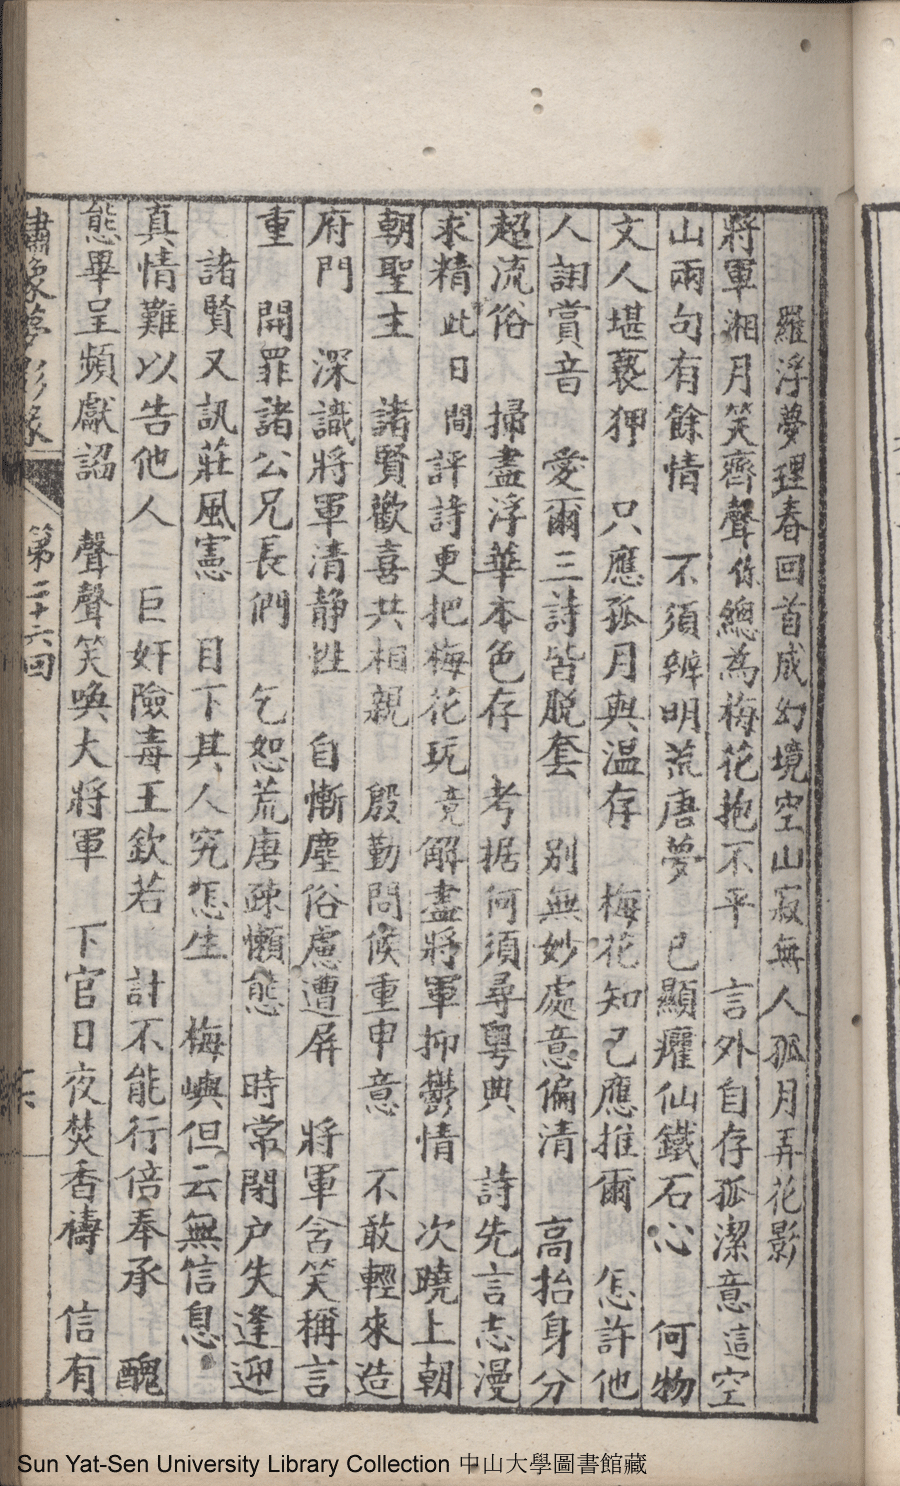 羅浮夢理春回首成幻境空山寂無人孤月弄花影
將軍湘月笑齊聲你總為梅花抱不平 言外自存孤潔意這空
山兩句有餘情 不須辨明荒唐夢 已顯癯仙鐵石心 何物
文人堪褻狎 只應孤月與温存 梅花知己應推爾 怎許他
人詡賞音 愛爾三詩皆脱套 別無妙處意偏清 高抬身分
超流俗 掃盡浮華本色存 考据何須尋粤典 詩先言志漫
求精此日間評詩更把梅花玩竟解盡將軍抑鬱情 次曉上朝
朝聖主 諸賢歡喜共相親 殷勤問候重申意 不敢輕來造
府門 深識將軍清静性 自慚塵俗慮遭屏 將軍含笑稱言
重 開罪諸公兄長們 乞恕荒唐疎懶態 時常閉户失逢迎
諸賢又訊莊風憲 目下其人究怎生 梅嶼但云無信息
真情難以告他人 巨奸險毒王欽若 計不能行倍奉承 醜
態畢呈頻獻謟 聲聲笑喚大將軍 下官日夜焚香禱 信有
繡像夢影緣 第二十六回
Sun Yat-Sen University Library Collection 中山大學圖書館藏